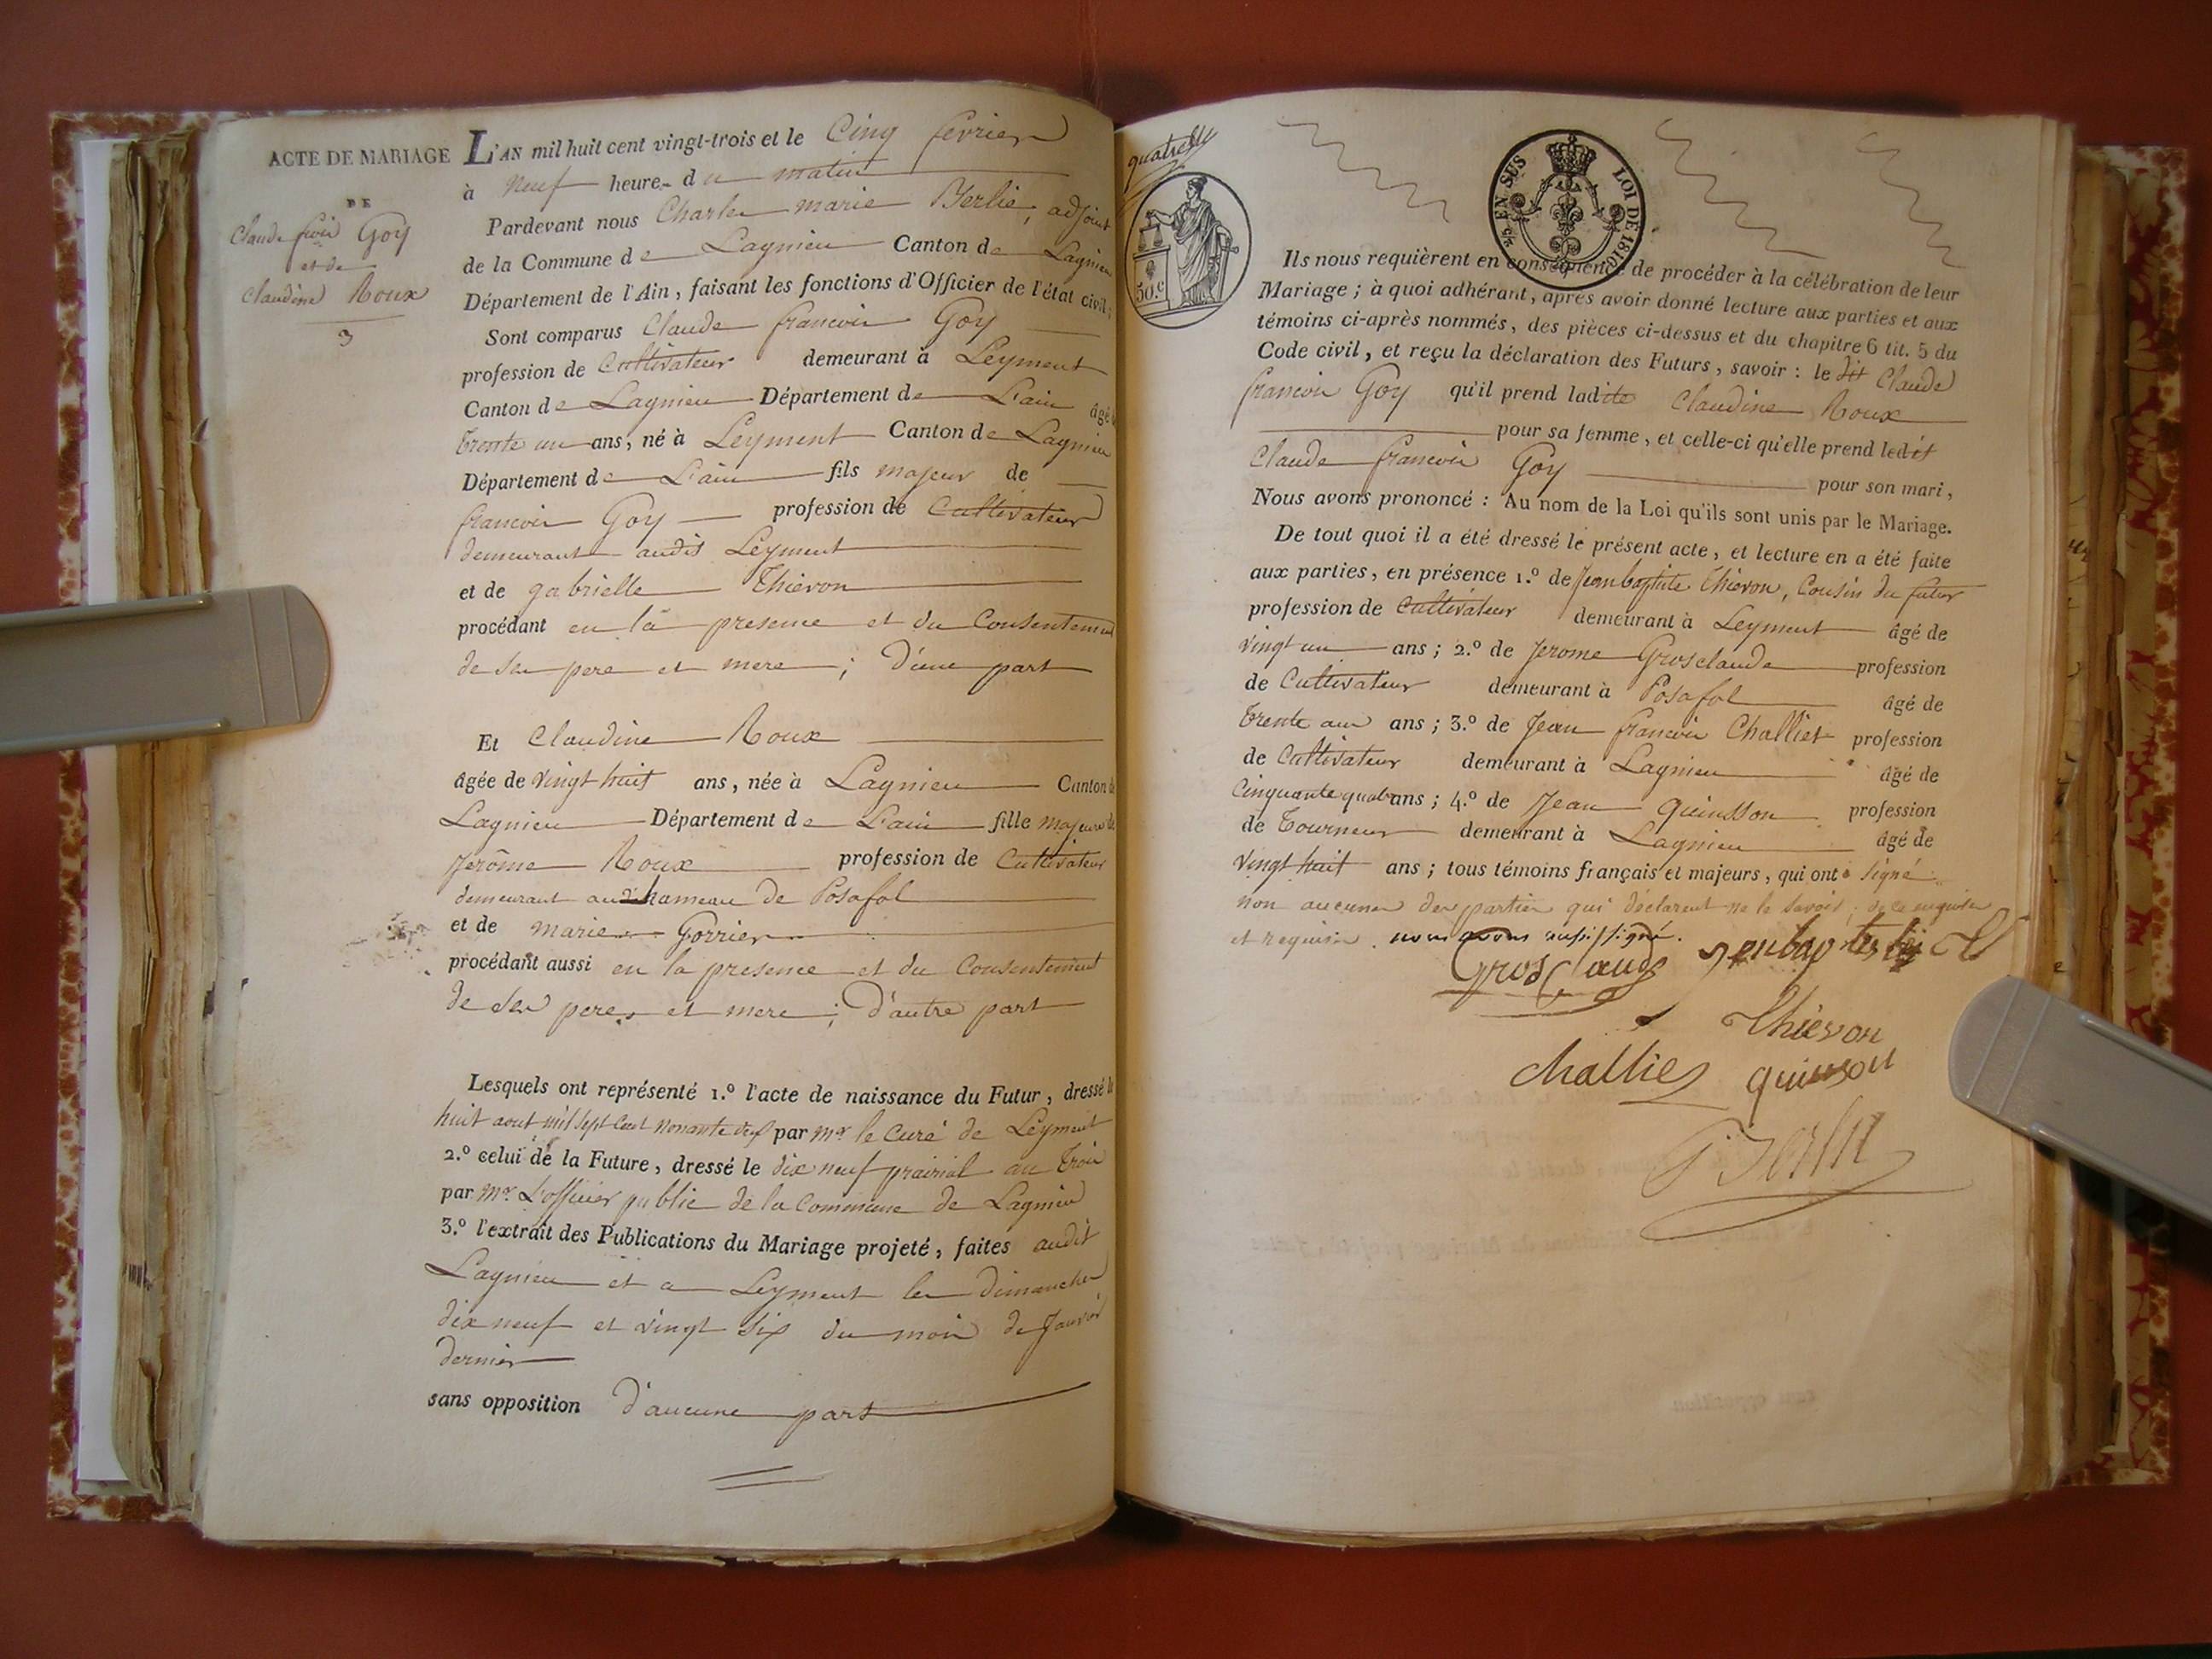 ACTE DE MARIAGE
DE
Claude frois Goy
et de
Claudine Roux
3
L'AN mil huit cent vingt-trois et le Cinq fevrier
à Neuf heures du matin
Pardevant nous Charles marie Berlie, adjoint
de la Commune de Lagnieu Canton de Lagnieu
Département de l'Ain, faisant les fonctions d'Officier de l'état civil;
Sont comparus Claude francois Goy
profession de Cultivateur demeurant à Leyment
Canton de Lagnieu Département de L'ain âgé de
trente un ans, né à Leyment Canton de Lagnieu
Département de L'ain fils majeur de
francois Goy profession de Cultivateur
demeurant audit Leyment
et de gabrielle Thievon
procédant en la presence et du Consentement
de ses pere et mere; D'une part
Et Claudine Roux
âgée de vingt huit ans, née à Lagnieu Canton de
Lagnieu Département de L'ain fille majeure de
Jerôme Roux profession de Cultivateur
demeurant au hameau de Posafol
et de marie Gorrier
procédant aussi en la presence et du Consentement
de ses peres et mere; D'autre part
Lesquels ont représenté 1.º l'acte de naissance du Futur, dressé le
huit aout mil sept Cent Nonante par Mr le Curé de Leyment
2.º celui de la Future, dressé le dix neuf prairial an trois
par Mr L'officier public de la Commune de Lagnieu
3.º l'extrait des Publications du Mariage projeté, faites audit
Lagnieu et a Leyment les Dimanches
dix neuf et vingt six du mois de Janvier
dernier
sans opposition D'aucune part
quatre
50.c
EN SUS
LOI DE 1816
Ils nous requièrent en conséquence de procéder à la célébration de leur
Mariage; à quoi adhérant, après avoir donné lecture aux parties et aux
témoins ci-après nommés, des pièces ci-dessus et du chapitre 6 tit. 5 du
Code civil, et reçu la déclaration des Futurs, savoir: le dit Claude
francois Goy qu'il prend ladite Claudine Roux
pour sa femme, et celle-ci qu'elle prend ledit
Claude francois Goy pour son mari,
Nous avons prononcé: Au nom de la Loi qu'ils sont unis par le Mariage.
De tout quoi il a été dressé le présent acte, et lecture en a été faite
aux parties, en présence 1.º de Jean baptiste Thievon, Cousin du futur
profession de Cultivateur demeurant à Leyment âgé de
vingt un ans; 2.º de Jerome Grosclaude profession
de Cultivateur demeurant à Posafol âgé de
trente ans; 3.º de Jean francois Challiet profession
de Cultivateur demeurant à Lagnieu âgé de
Cinquante quatre ans; 4.º de Jean quinsson profession
de Tourneur demeurant à Lagnieu âgé de
vingt huit ans; tous témoins français et majeurs, qui ont signé
non aucunes des parties qui déclarent ne le savoir, de ce enquises
et requises. nous avons aussi signé.
Grosclaude
Thievon
challiet quinson
Berlie